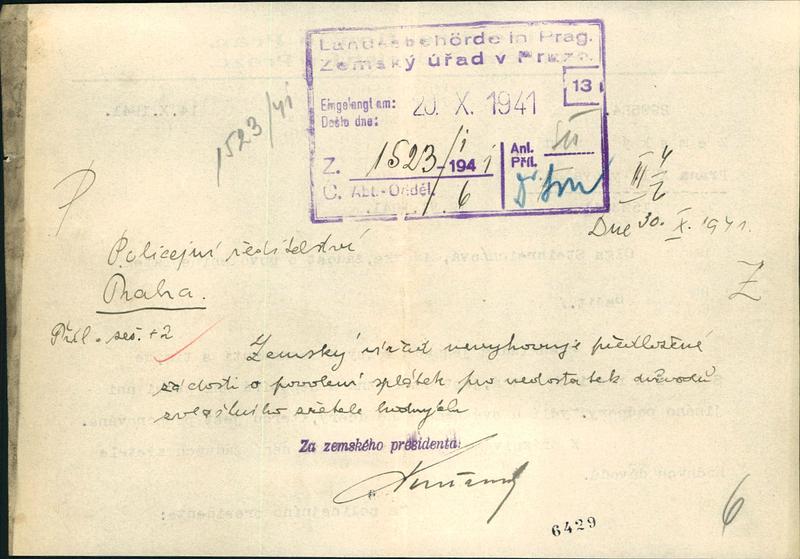 Landesbehörde in Prag.
Zemský úřad v Praze.
13
Eingelangt am:
Došlo dne:
20. X. 1941
Z. 1523/1-1941
Č. Abt.-Odděl. 6
Anl.
Příl.
1523/41
Dne 30. X. 1941.
Policejní ředitelství
Praha.
Příl. seš. + 2
Z
Zemský úřad nevyhovuje předložené
žádosti o povolení splátek pro nedostatek důvodů
zvláštního zřetele hodných
Za zemského presidenta:
6429
6